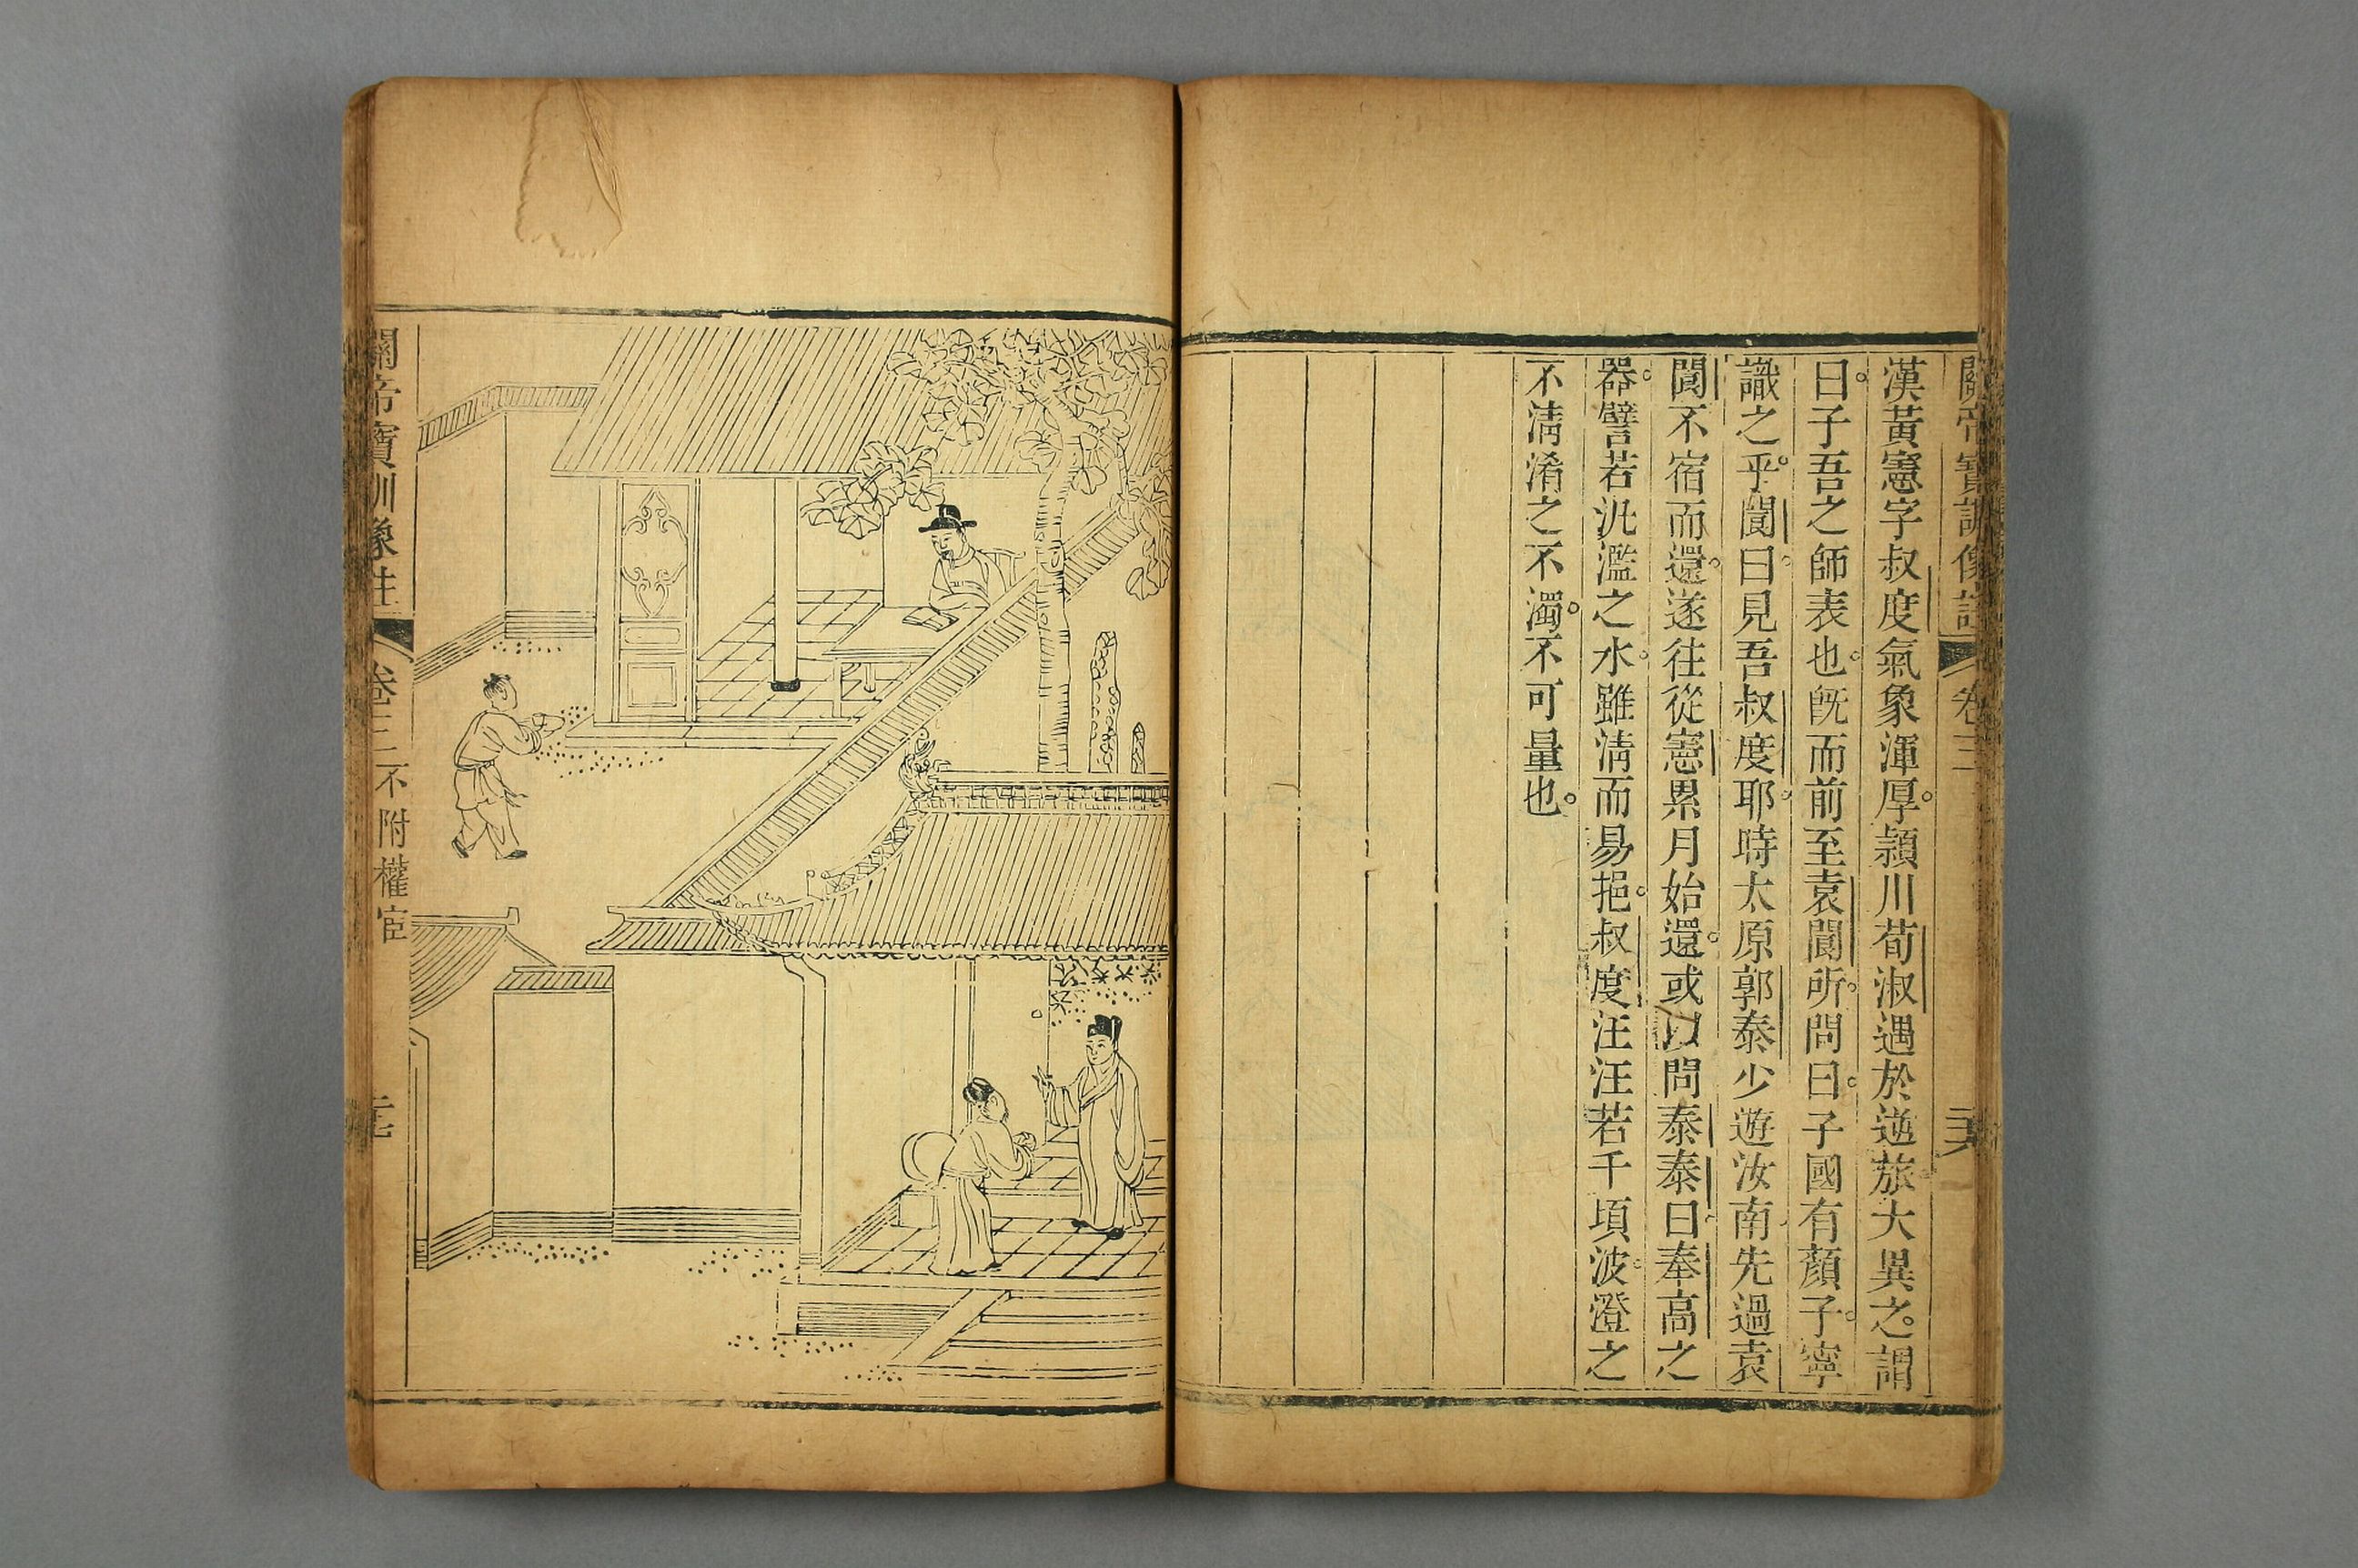 關帝寶訓像註 卷三
漢黃憲字叔度氣象渾厚潁川荀淑遇於逆旅大異之謂
曰子吾之師表也旣而前至袁閬所問曰子國有顏子寧
識之乎閬曰見吾叔度耶時太原郭泰少遊汝南先過袁
閬不宿而還遂往從憲累月始還或以問泰泰曰奉高之
器譬若汎濫之水雖淸而易挹叔度汪汪若千頃波澄之
不淸淆之不濁不可量也
關帝寶訓像註 卷三 不附權宦